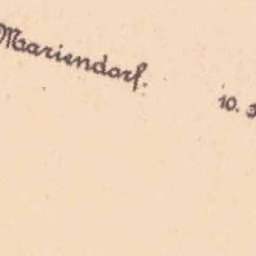 Mariendorf. 10. 3